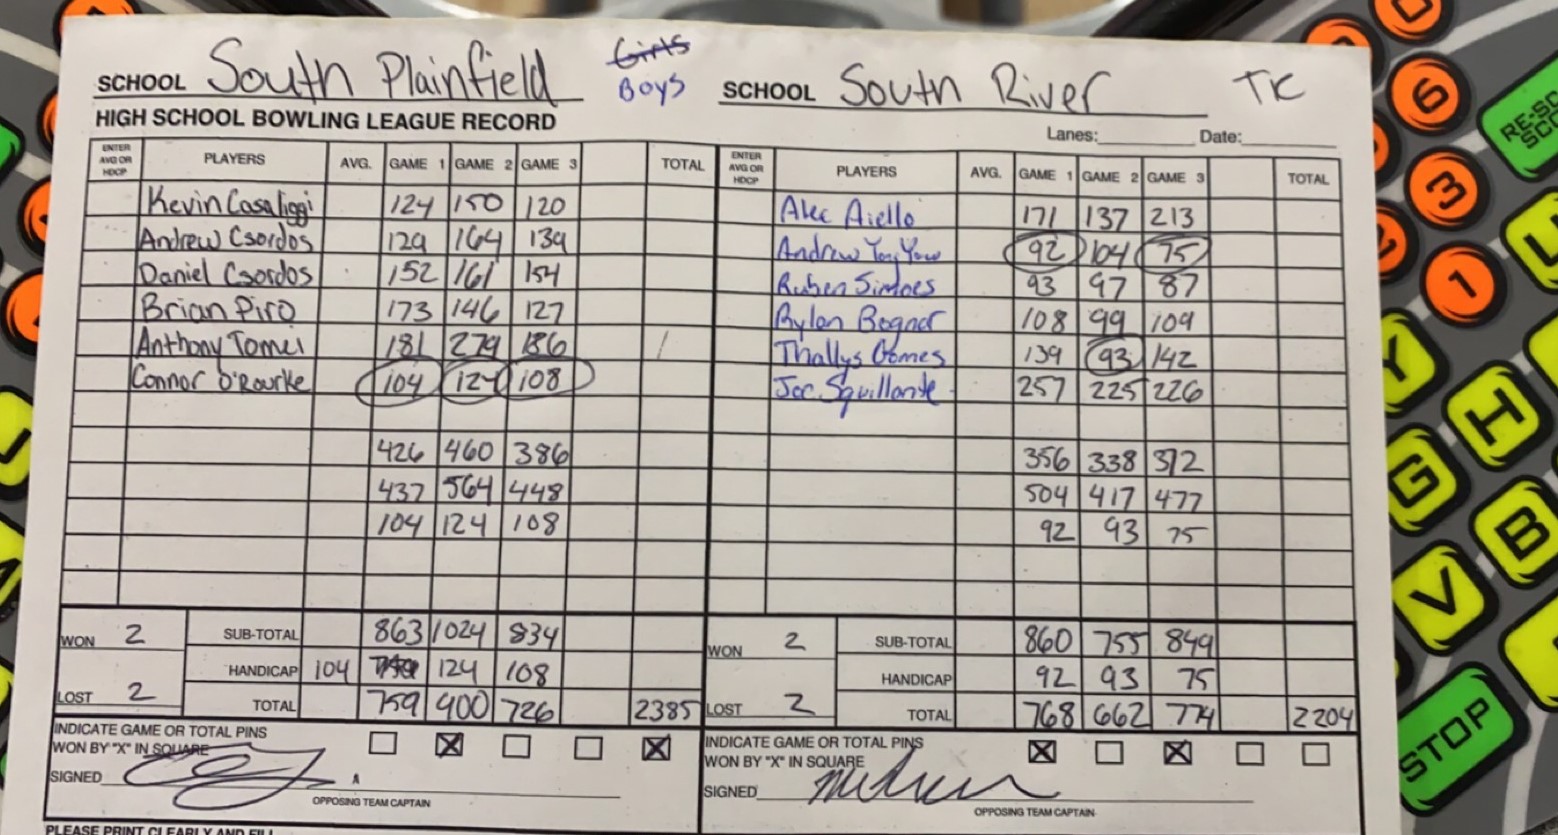 South Plainfield Girls Boys
SCHOOL
HIGH SCHOOL BOWLING LEAGUE RECORD
ENTER AVG OR HDCP PLAYERS AVG. GAME 1 GAME 2 GAME 3 TOTAL
Kevin Casaliggi 124 150 120
Andrew Csordos 129 164 139
Daniel Csordos 152 161 154
Brian Piro 173 146 127
Anthony Tomei 181 279 186
Connor O'Rourke 104 124 108
426 460 386
437 564 448
104 124 108
WON 2 SUB-TOTAL 863 1024 834
HANDICAP 104 124 108
LOST 2 TOTAL 759 900 726 2385
INDICATE GAME OR TOTAL PINS
WON BY "X" IN SQUARE
SIGNED
OPPOSING TEAM CAPTAIN
PLEASE PRINT CLEARLY AND FILL
SCHOOL South River TK
Lanes: Date:
ENTER AVG OR HDCP PLAYERS AVG. GAME 1 GAME 2 GAME 3 TOTAL
Alec Aiello 171 137 213
Andrew 92 104 75
Ruben Simoes 93 97 87
Rylan Bognar 108 99 109
Thallys Gomes 139 93 142
Joe Squillante 257 225 226
356 338 372
504 417 477
92 93 75
WON 2 SUB-TOTAL 860 755 849
HANDICAP 92 93 75
LOST 2 TOTAL 768 662 774 2204
INDICATE GAME OR TOTAL PINS
WON BY "X" IN SQUARE
SIGNED
OPPOSING TEAM CAPTAIN
6
3
1
RE-SC
SCO
Y
H
G
B
V
STOP